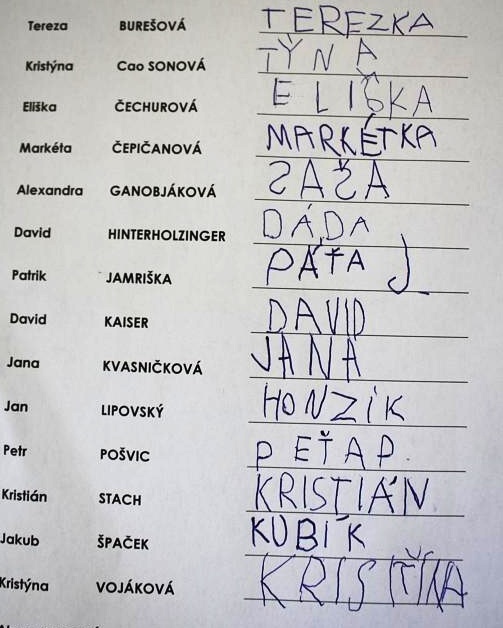 Tereza BUREŠOVÁ TEREZKA
Kristýna Cao SONOVÁ TÝNA
Eliška ČECHUROVÁ ELIŠKA
Markéta ČEPIČANOVÁ MARKÉTKA
Alexandra GANOBJÁKOVÁ SAŠA
David HINTERHOLZINGER DÁDA
Patrik JAMRIŠKA PÁŤA J.
David KAISER DAVID
Jana KVASNIČKOVÁ JANA
Jan LIPOVSKÝ HONZÍK
Petr POŠVIC PEŤA P.
Kristián STACH KRISTIÁN
Jakub ŠPAČEK KUBÍK
Kristýna VOJÁKOVÁ